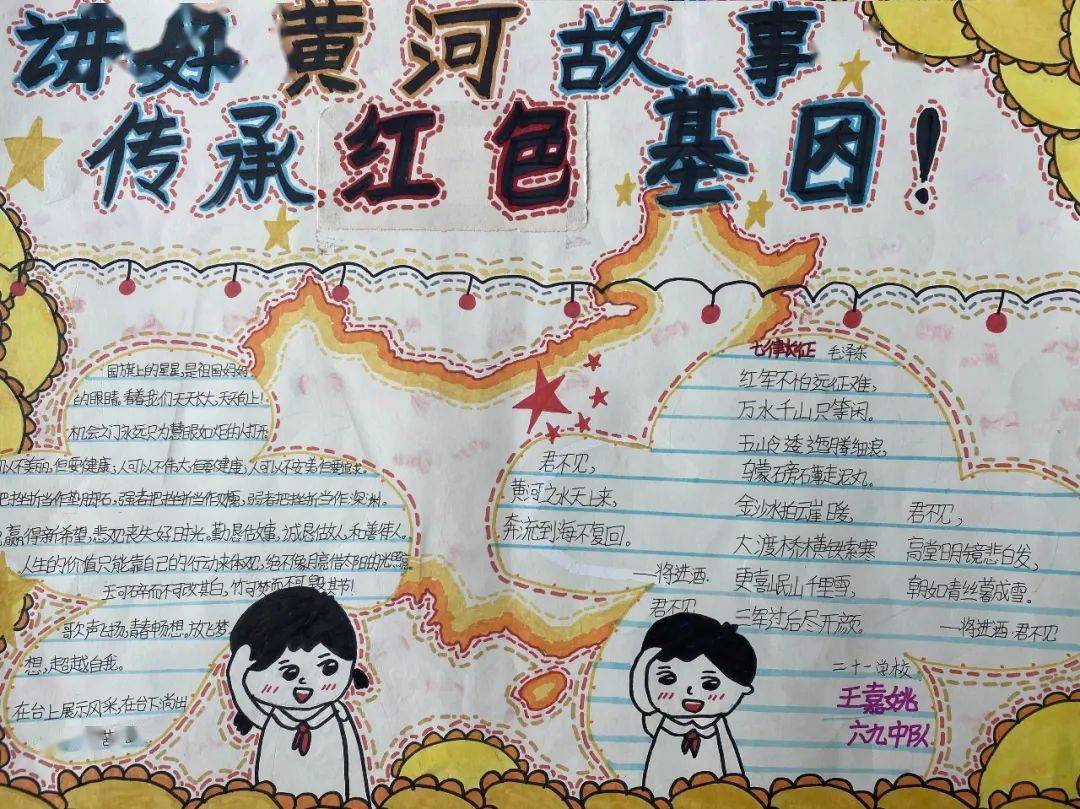 讲好黄河故事
传承红色基因!
国旗上的星星,是祖国妈妈
的眼睛.看着我们天天长大,天天向上!
机会之门永远只为慧眼如炬的人打开
可以不美丽,但要健康;人可以不伟大但要健康,人可以不完美但要
把挫折当作垫脚石,强者把挫折当作财富,弱者把挫折当作深渊。
赢得新希望,悲观丧失好时光。勤恳做事,诚恳做人,和善待人。
人生的价值只能靠自己的行动来体现,绝不像月亮借太阳的光
天可碎而不可改其白,竹可焚而不可毁其节!
歌声飞扬,青春畅想,放飞梦
想,超越自我。
在台上展示风采,在台下
君不见,
黄河之水天上来,
奔流到海不复回。
—将进酒.
君不见
七律长征 毛泽东
红军不怕远征难,
万水千山只等闲。
五岭逶迤腾细浪,
乌蒙磅礴走泥丸。
金沙水拍云崖暖,
大渡桥横铁索寒
更喜岷山千里雪,
三军过后尽开颜。
君不见,
高堂明镜悲白发,
朝如青丝暮成雪。
—将进酒·君不见
二十一学校
王嘉姚
六九中队